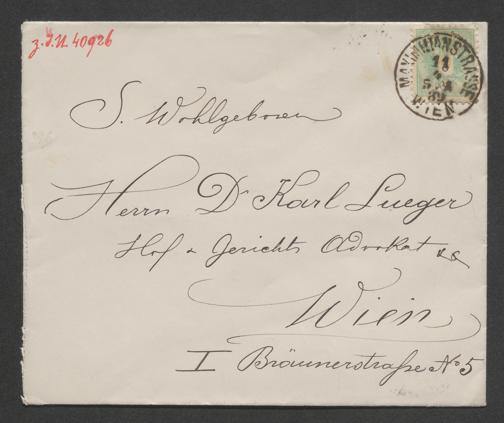 z. I.N. 40926
MAXIMILIANSTRASSE
11
4
WIEN
S. Wohlgeboren
Herrn Dr Karl Lueger
Hof & Gerichts Advokat
Wien
I Bräunerstraße No 5